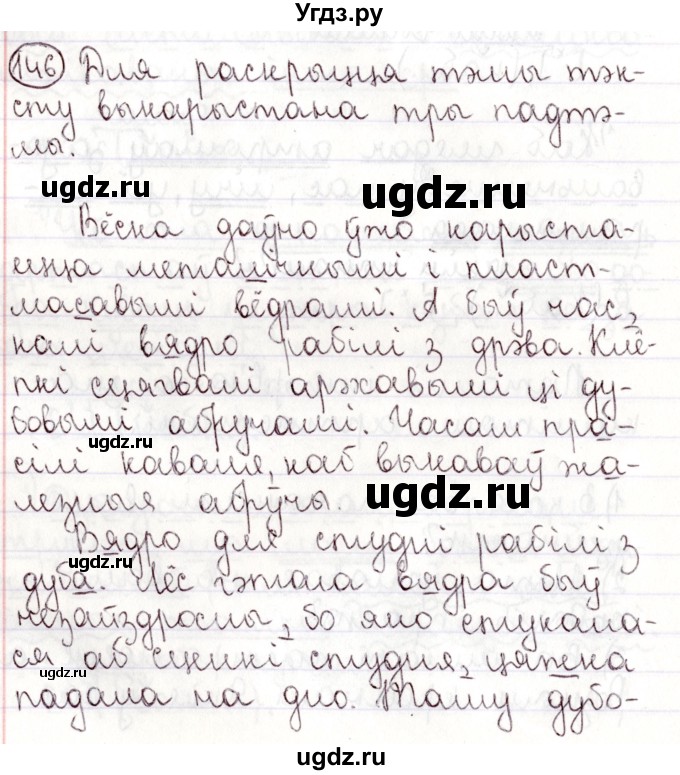 Угдз.ру
146 Для раскрыцця тэмы тэк-
сту выкарыстана тры падтэ-
мы.
ugdz.ru
ugdz.ru
Вёска даўно ўжо карыста-
ецца металічнымі і пласт-
масавымі вёдрамі. А быў час,
калі вядро рабілі з дрэва. Клё-
пкі сцягвалі арэхавымі ці ду-
бовымі абручамі. Часам пра-
ugdz.ru
сілі каваля, каб выкаваў жа-
лезныя абручы.
ugdz.ru
Вядро для студні рабілі з
дуба. Лёс гэтага вядра быў
незайздросны, бо яно стукала-
ся аб сценкі студня, цяжка
падала на дно. Таму дубо-
ugdz.ru
ugdz.ru
ugdz.ru